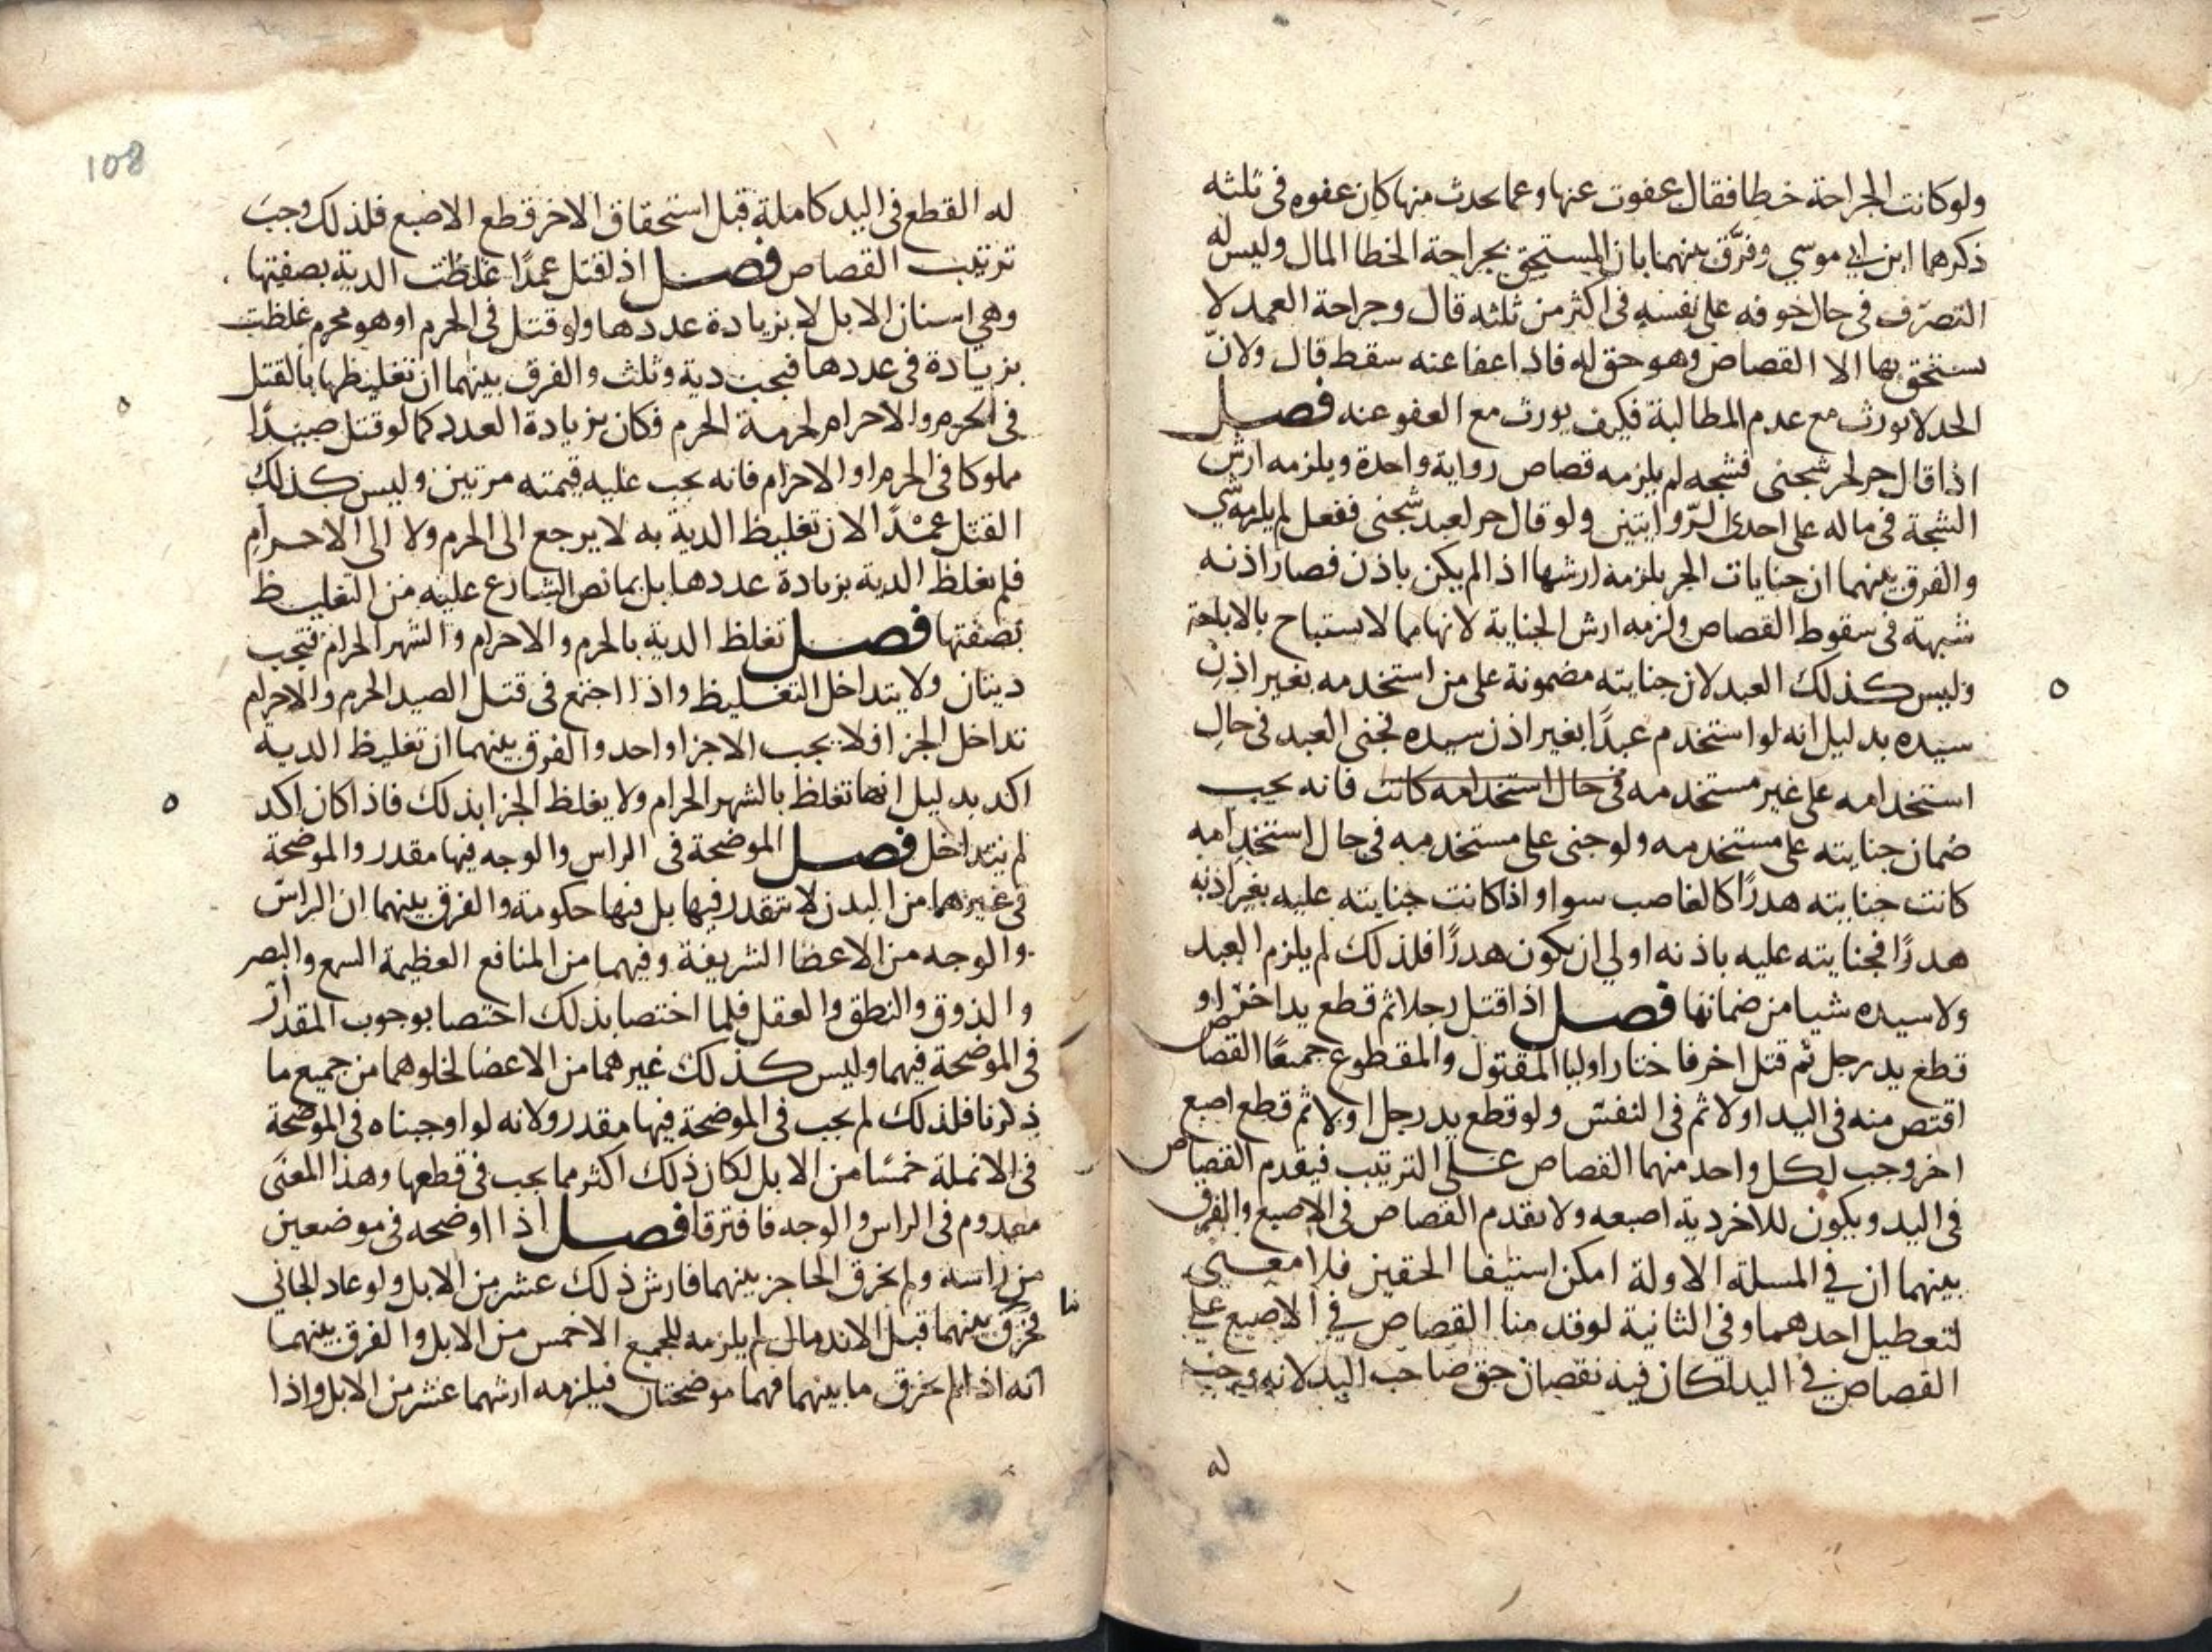 ولو كانت الجراحة خطا فقال عفوت عنها وعما يحدث منها كان عفوه في ثلثه
ذكرهما ابن ابي موسي وفرَّق بينهما بان المستحق بجراحة الخطا المال وليس له
التصرّف في حال خوفه على نفسه في اكثر من ثلثه قال وجراحة العمد لا
يستحق بها الا القصاص وهو حق له فاذا عفا عنه سقط قال ولانّ
الحد لا يورث مع عدم المطالبة فكيف يورث مع العفو عنه فصل
اذا قال حر لحر شجني فشجه لم يلزمه قصاص رواية واحدة ويلزمه ارش
الشجة في ماله على احدى الرّوايتين ولو قال حر لعبد شجني ففعل لم يلزمه شي
والفرق بينهما ان جنايات الحر يلزمه ارشها اذا لم يكن باذن فصار اذنه
شبهة في سقوط القصاص ولزمه ارش الجناية لانها مما لا يستباح بالاباحة
وليس كذلك العبد لان جنايته مضمونة على من استخدمه بغير اذن
سيده بدليل انه لو استخدم عبدًا بغير اذن سيده فجنى العبد في حال
استخدامه على غير مستخدمه في حال استخدامه كانت فانه يجب
ضمان جنايته على مستخدمه ولو جنى على مستخدمه في حال استخدامه
كانت جنايته هدرًا كالغاصب سوا واذا كانت جنايته عليه بغير اذنه
هدرًا فجنايته عليه باذنه اولي ان يكون هدرًا فلذلك لم يلزم العبد
ولا سيده شيا من ضمانها فصل اذا قتل رجلا ثم قطع يد اخر او
قطع يد رجل ثم قتل اخر فاختار اوليا المقتول والمقطوع جميعًا القصاص
اقتص منه في اليد اولا ثم في النفس ولو قطع يد رجل اولا ثم قطع اصبع
اخر وجب لكل واحد منهما القصاص على الترتيب فيقدم القصاص
في اليد ويكون للاخر دية اصبعه ولا يقدم القصاص في الاصبع والفرق
بينهما ان في المسلة الاولة امكن استيفا الحقين فلا معنى
لتعطيل احدهما وفي الثانية لو قدمنا القصاص في الاصبع على
القصاص في اليد لكان فيه نقصان حق صاحب اليد لانه وجب
له
108
له القطع في اليد كاملة قبل استحقاق الاخر قطع الاصبع فلذلك وجب
ترتيب القصاص فصل اذا قتل عمدًا غلظت الدية بصفتها
وهي اسنان الابل لا بزيادة عددها ولو قتل في الحرم او هو محرم غلظت
بزيادة في عددها فيجب دية وثلث والفرق بينهما ان تغليظها بالقتل
في الحرم والاحرام لحرمة الحرم فكان بزيادة العدد كما لو قتل صيدًا
مملوكا في الحرم او الاحرام فانه يجب عليه قيمته مرتين وليس كذلك
القتل عمدًا لان تغليظ الدية به لا يرجع الى الحرم ولا الى الاحرام
فلم يغلظ الدية بزيادة عددها بل بما نص الشارع عليه من التغليظ
بصفتها فصل تغلظ الدية بالحرم والاحرام والشهر الحرام فتجب
ديتان ولا يتداخل التغليظ واذا اجتمع في قتل الصيد الحرم والاحرام
تداخل الجزا فلا يجب الا جزا واحد والفرق بينهما ان تغليظ الدية
اكد بدليل انها تغلظ بالشهر الحرام ولا يغلظ الجزا بذلك فاذا كان اكد
لم يتداخل فصل الموضحة في الراس والوجه فيها مقدر والموضحة
في غيرهما من البدن لا تتقدر فيها بل فيها حكومة والفرق بينهما ان الراس
والوجه من الاعضا الشريفة وفيهما من المنافع العظيمة السمع والبصر
والذوق والنطق والعقل فلما اختصا بذلك اختصا بوجوب المقدار
في الموضحة فيهما وليس كذلك غيرهما من الاعضا لخلوهما من جميع ما
ذكرنا فلذلك لم يجب في الموضحة فيها مقدر ولانه لو اوجبناه في الموضحة
في الانملة خمسًا من الابل لكان ذلك اكثر مما يجب في قطعها وهذا المعنى
معدوم في الراس والوجه فافترقا فصل اذا اوضحه في موضعين
من راسه ولم يخرق الحاجز بينهما فارش ذلك عشر من الابل ولو عاد الجاني
فخرق بينهما قبل الاندمال لم يلزمه للجميع الا خمس من الابل والفرق بينهما
انه اذا لم يخرق ما بينهما فهما موضحتان فيلزمه ارشهما عشر من الابل واذا